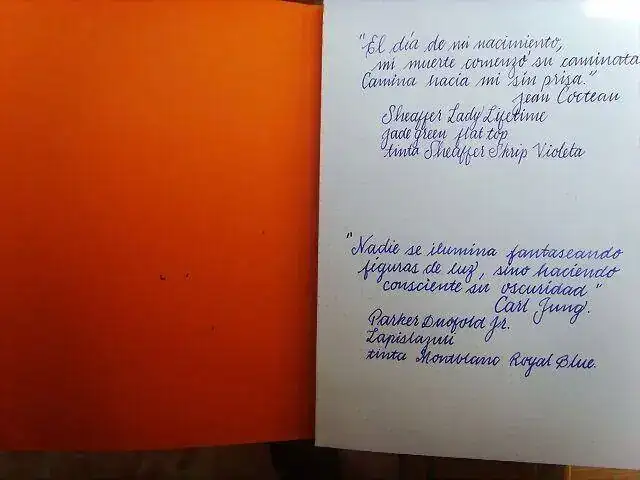 "El día de mi nacimiento,
mi muerte comenzó su caminata
Camina hacia mi sin prisa."
Jean Cocteau
Sheaffer Lady Lifetime
jade green flat top
tinta Sheaffer Skrip Violeta
"Nadie se ilumina fantaseando
figuras de luz, sino haciendo
consciente su oscuridad"
Carl Jung.
Parker Duofold Jr.
Lapislazuli
tinta Montblanc Royal Blue.